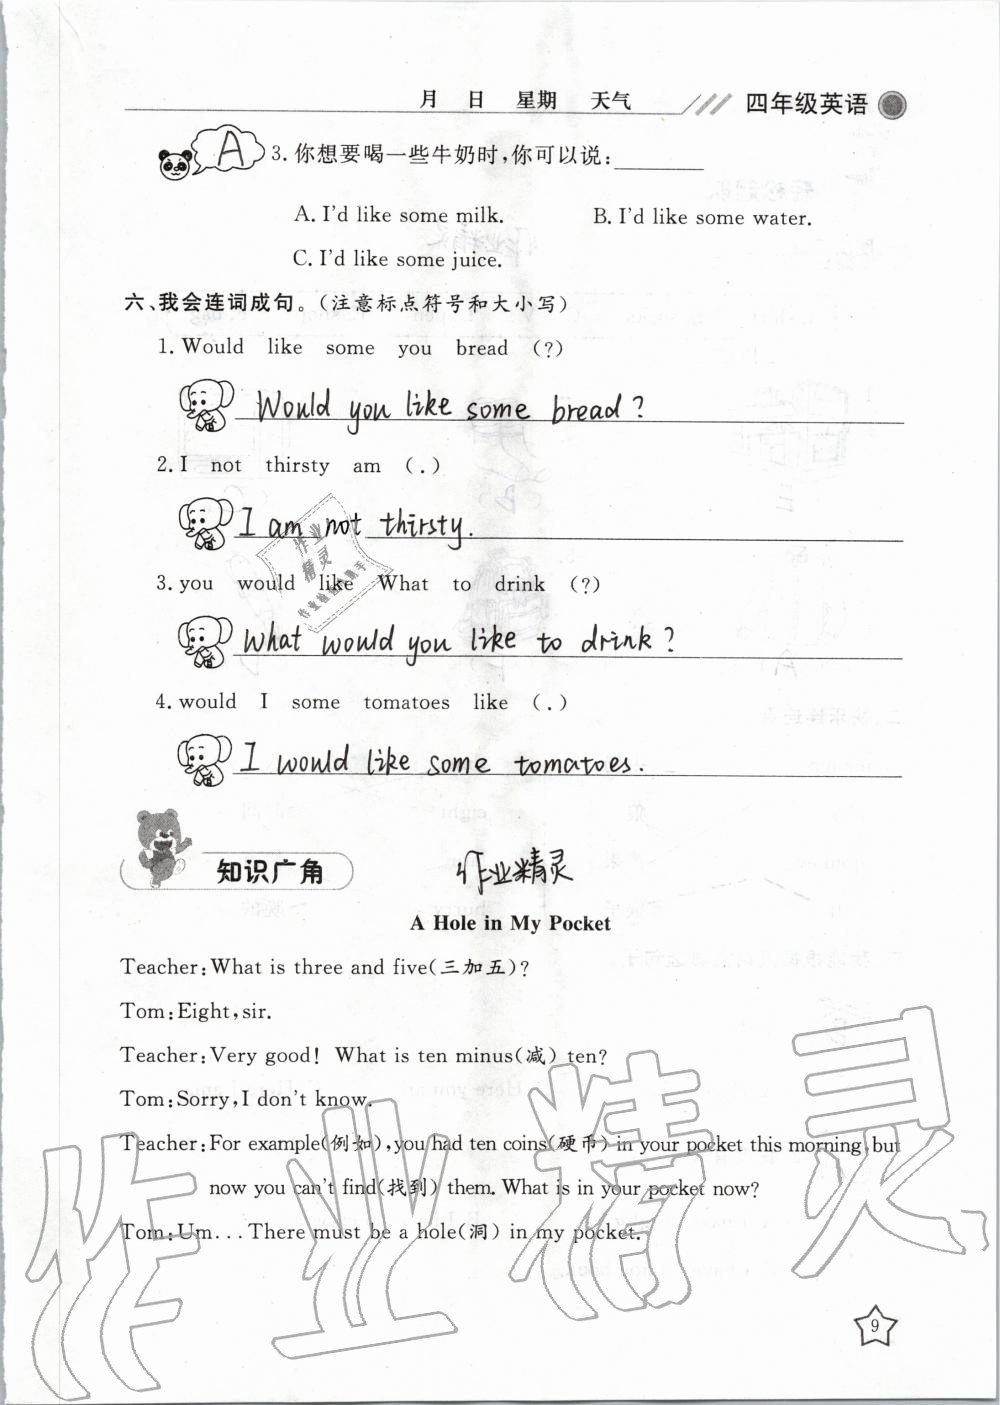 月 日 星期 天气 四年级英语
A 3.你想要喝一些牛奶时,你可以说:
A. I'd like some milk. B. I'd like some water.
C. I'd like some juice.
六、我会连词成句。(注意标点符号和大小写)
1. Would like some you bread (?)
Would you like some bread?
2. I not thirsty am (.)
I am not thirsty.
3. you would like What to drink (?)
What would you like to drink?
4. would I some tomatoes like (.)
I would like some tomatoes.
知识广角 作业精灵
A Hole in My Pocket
Teacher: What is three and five(三加五)?
Tom: Eight, sir.
Teacher: Very good! What is ten minus(减) ten?
Tom: Sorry, I don't know.
Teacher: For example(例如), you had ten coins(硬币) in your pocket this morning, but
now you can't find(找到) them. What is in your pocket now?
Tom: Um... There must be a hole(洞) in my pocket.
作业精灵
9